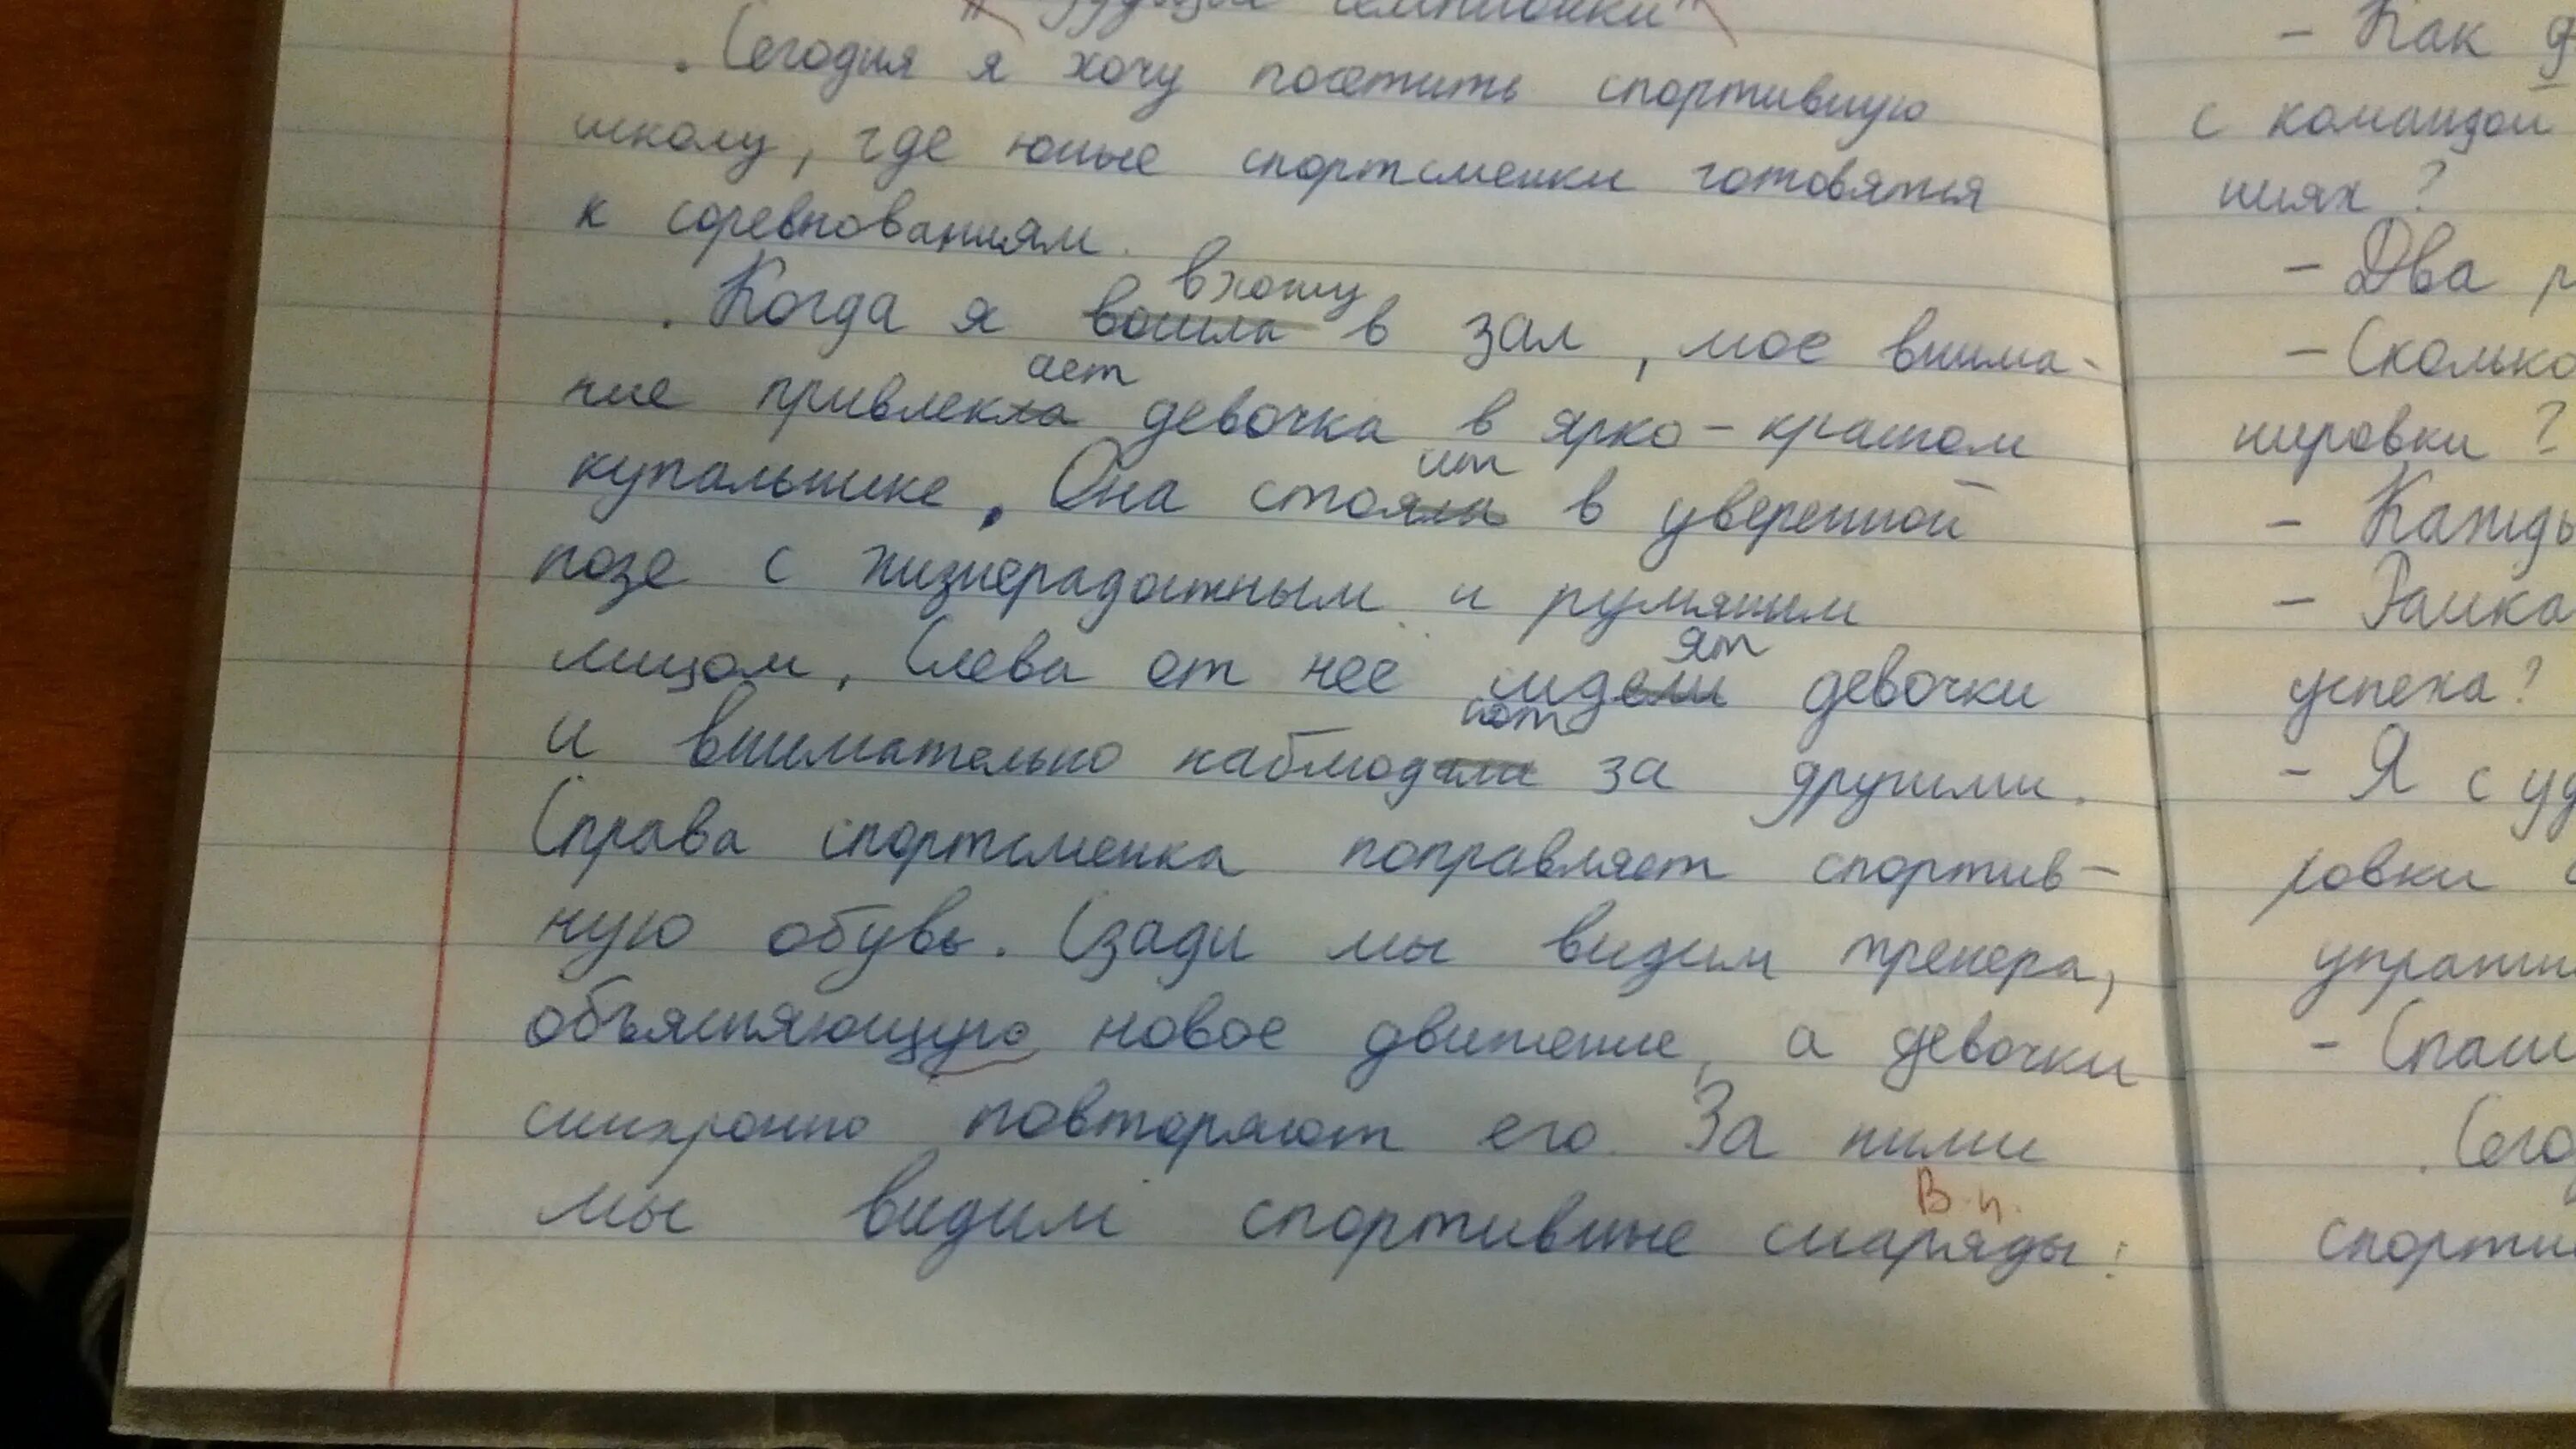 "Будущие чемпионки"
Сегодня я хочу посетить спортивную
школу, где юные спортсменки готовятся
к соревнованиям.
вхожу
Когда я вошла в зал, мое внима-
ает
ние привлекла девочка в ярко-красном
купальнике. Она стояла в уверенной
ит
позе с жизнерадостным и румяным
лицом. Слева от нее сидели девочки
ят
и внимательно наблюдали за другими.
ют
Справа спортсменка поправляет спортив-
ную обувь. Сзади мы видим тренера,
объясняющую новое движение, а девочки
синхронно повторяют его. За ними
В.п.
мы видим спортивные снаряды:
- Как
с командой
ниях?
- Два
- Сколько
нировки?
- Кажды
- Раска
успеха?
- Я с уд
ровки
упражн
- Спаси
Сего
спорти